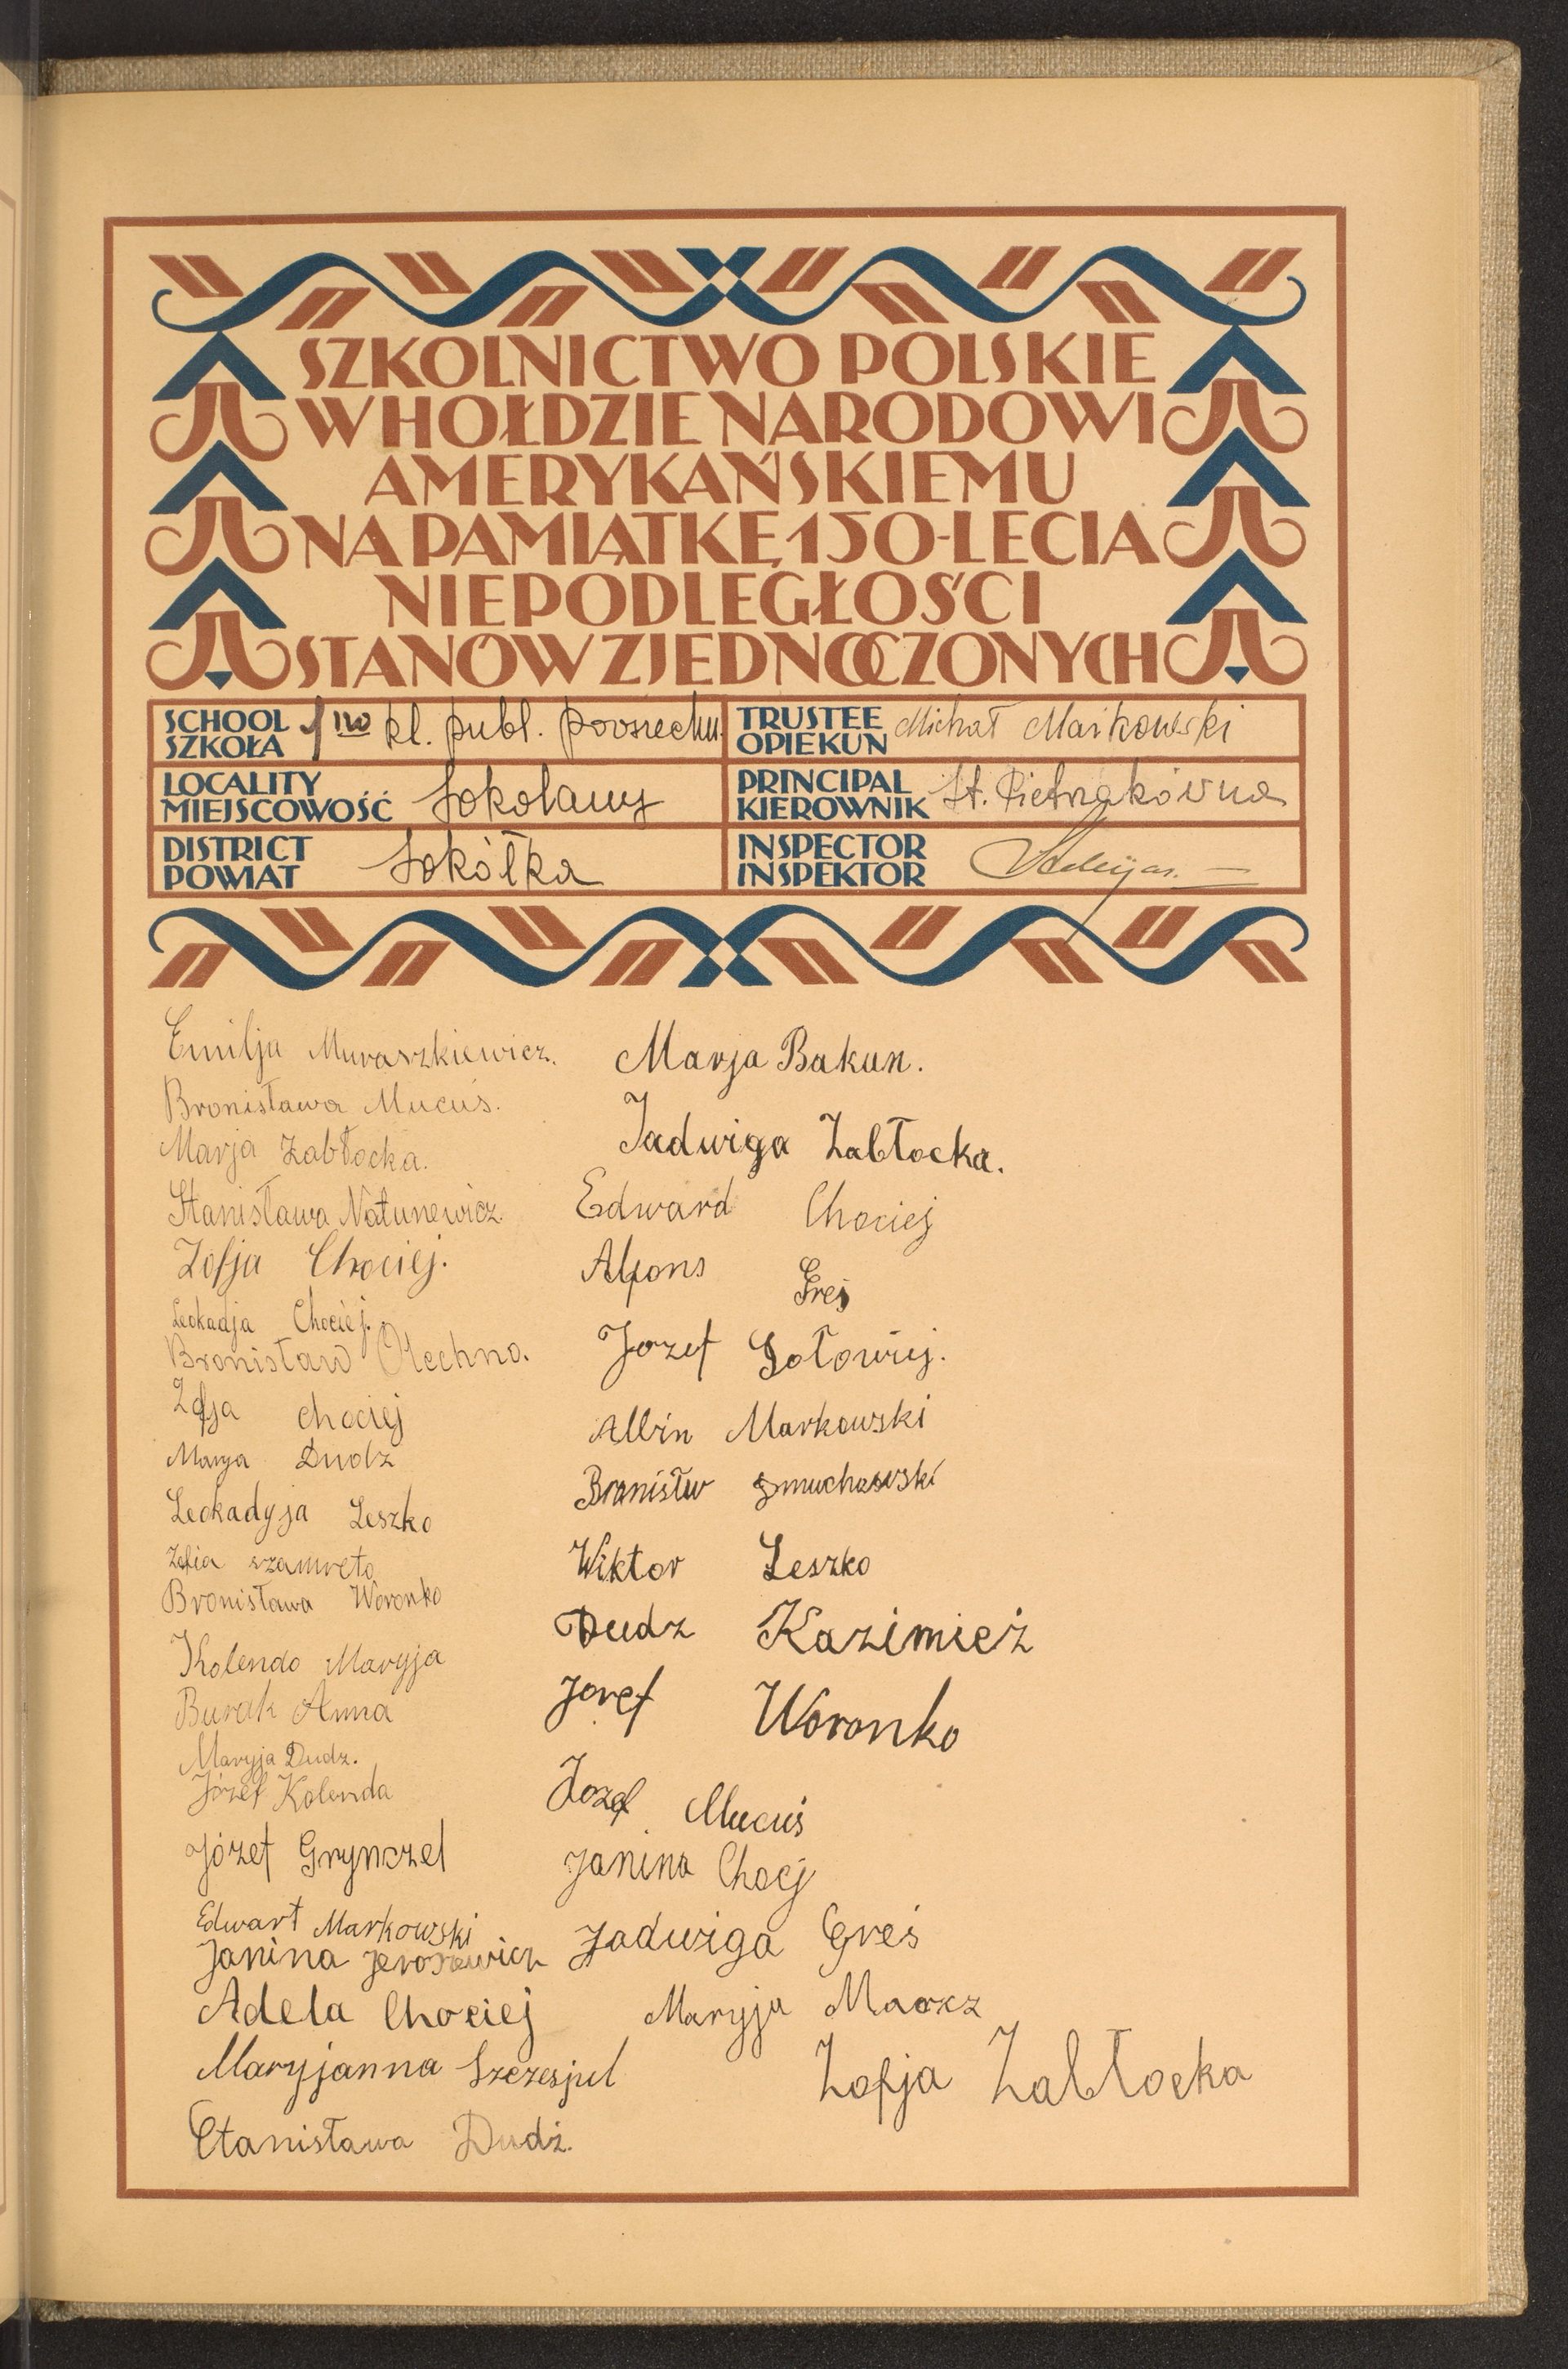 SZKOLNICTWO POLSKIE
W HOŁDZIE NARODOWI
AMERYKAŃSKIEMU
NA PAMIĄTKĘ 150-LECIA
NIEPODLEGŁOŚCI
STANÓW ZJEDNOCZONYCH
SCHOOL
SZKOŁA
1 no kl. publ. powszechn.
TRUSTEE
OPIEKUN
Michał Markowski
LOCALITY
MIEJSCOWOŚĆ
Sokolany
PRINCIPAL
KIEROWNIK
St. Pietrzakówna
DISTRICT
POWIAT
Sokółka
INSPECTOR
INSPEKTOR
Emilja Muraszkiewicz.
Bronisława Mucuś.
Marja Zabłocka.
Stanisława Natunewicz.
Zofja Chociej.
Leokadja Chociej.
Bronisław Olechno.
Zofja chociej
Marya Dudz
Leokadyja Leszko
Zofia szamreto
Bronisława Woronko
Kolendo Maryja
Burak Anna
Maryja Dudz.
Józef Kolenda
Józef Grynczel
Edwart Markowski
Janina
Adela Chociej
Maryjanna
Stanisława Dudź.
Marja Bakun.
Jadwiga Zabłocka.
Edward Chociej
Alfons Greś
Jozef Gołowiej.
Albin Markowski
Bronisłw
Wiktor Leszko
Dudz Kazimież
Jozef Woronko
Jozef Mucuś
Janina Chocij
Jadwiga Greś
Maryja
Zofja Zabłocka